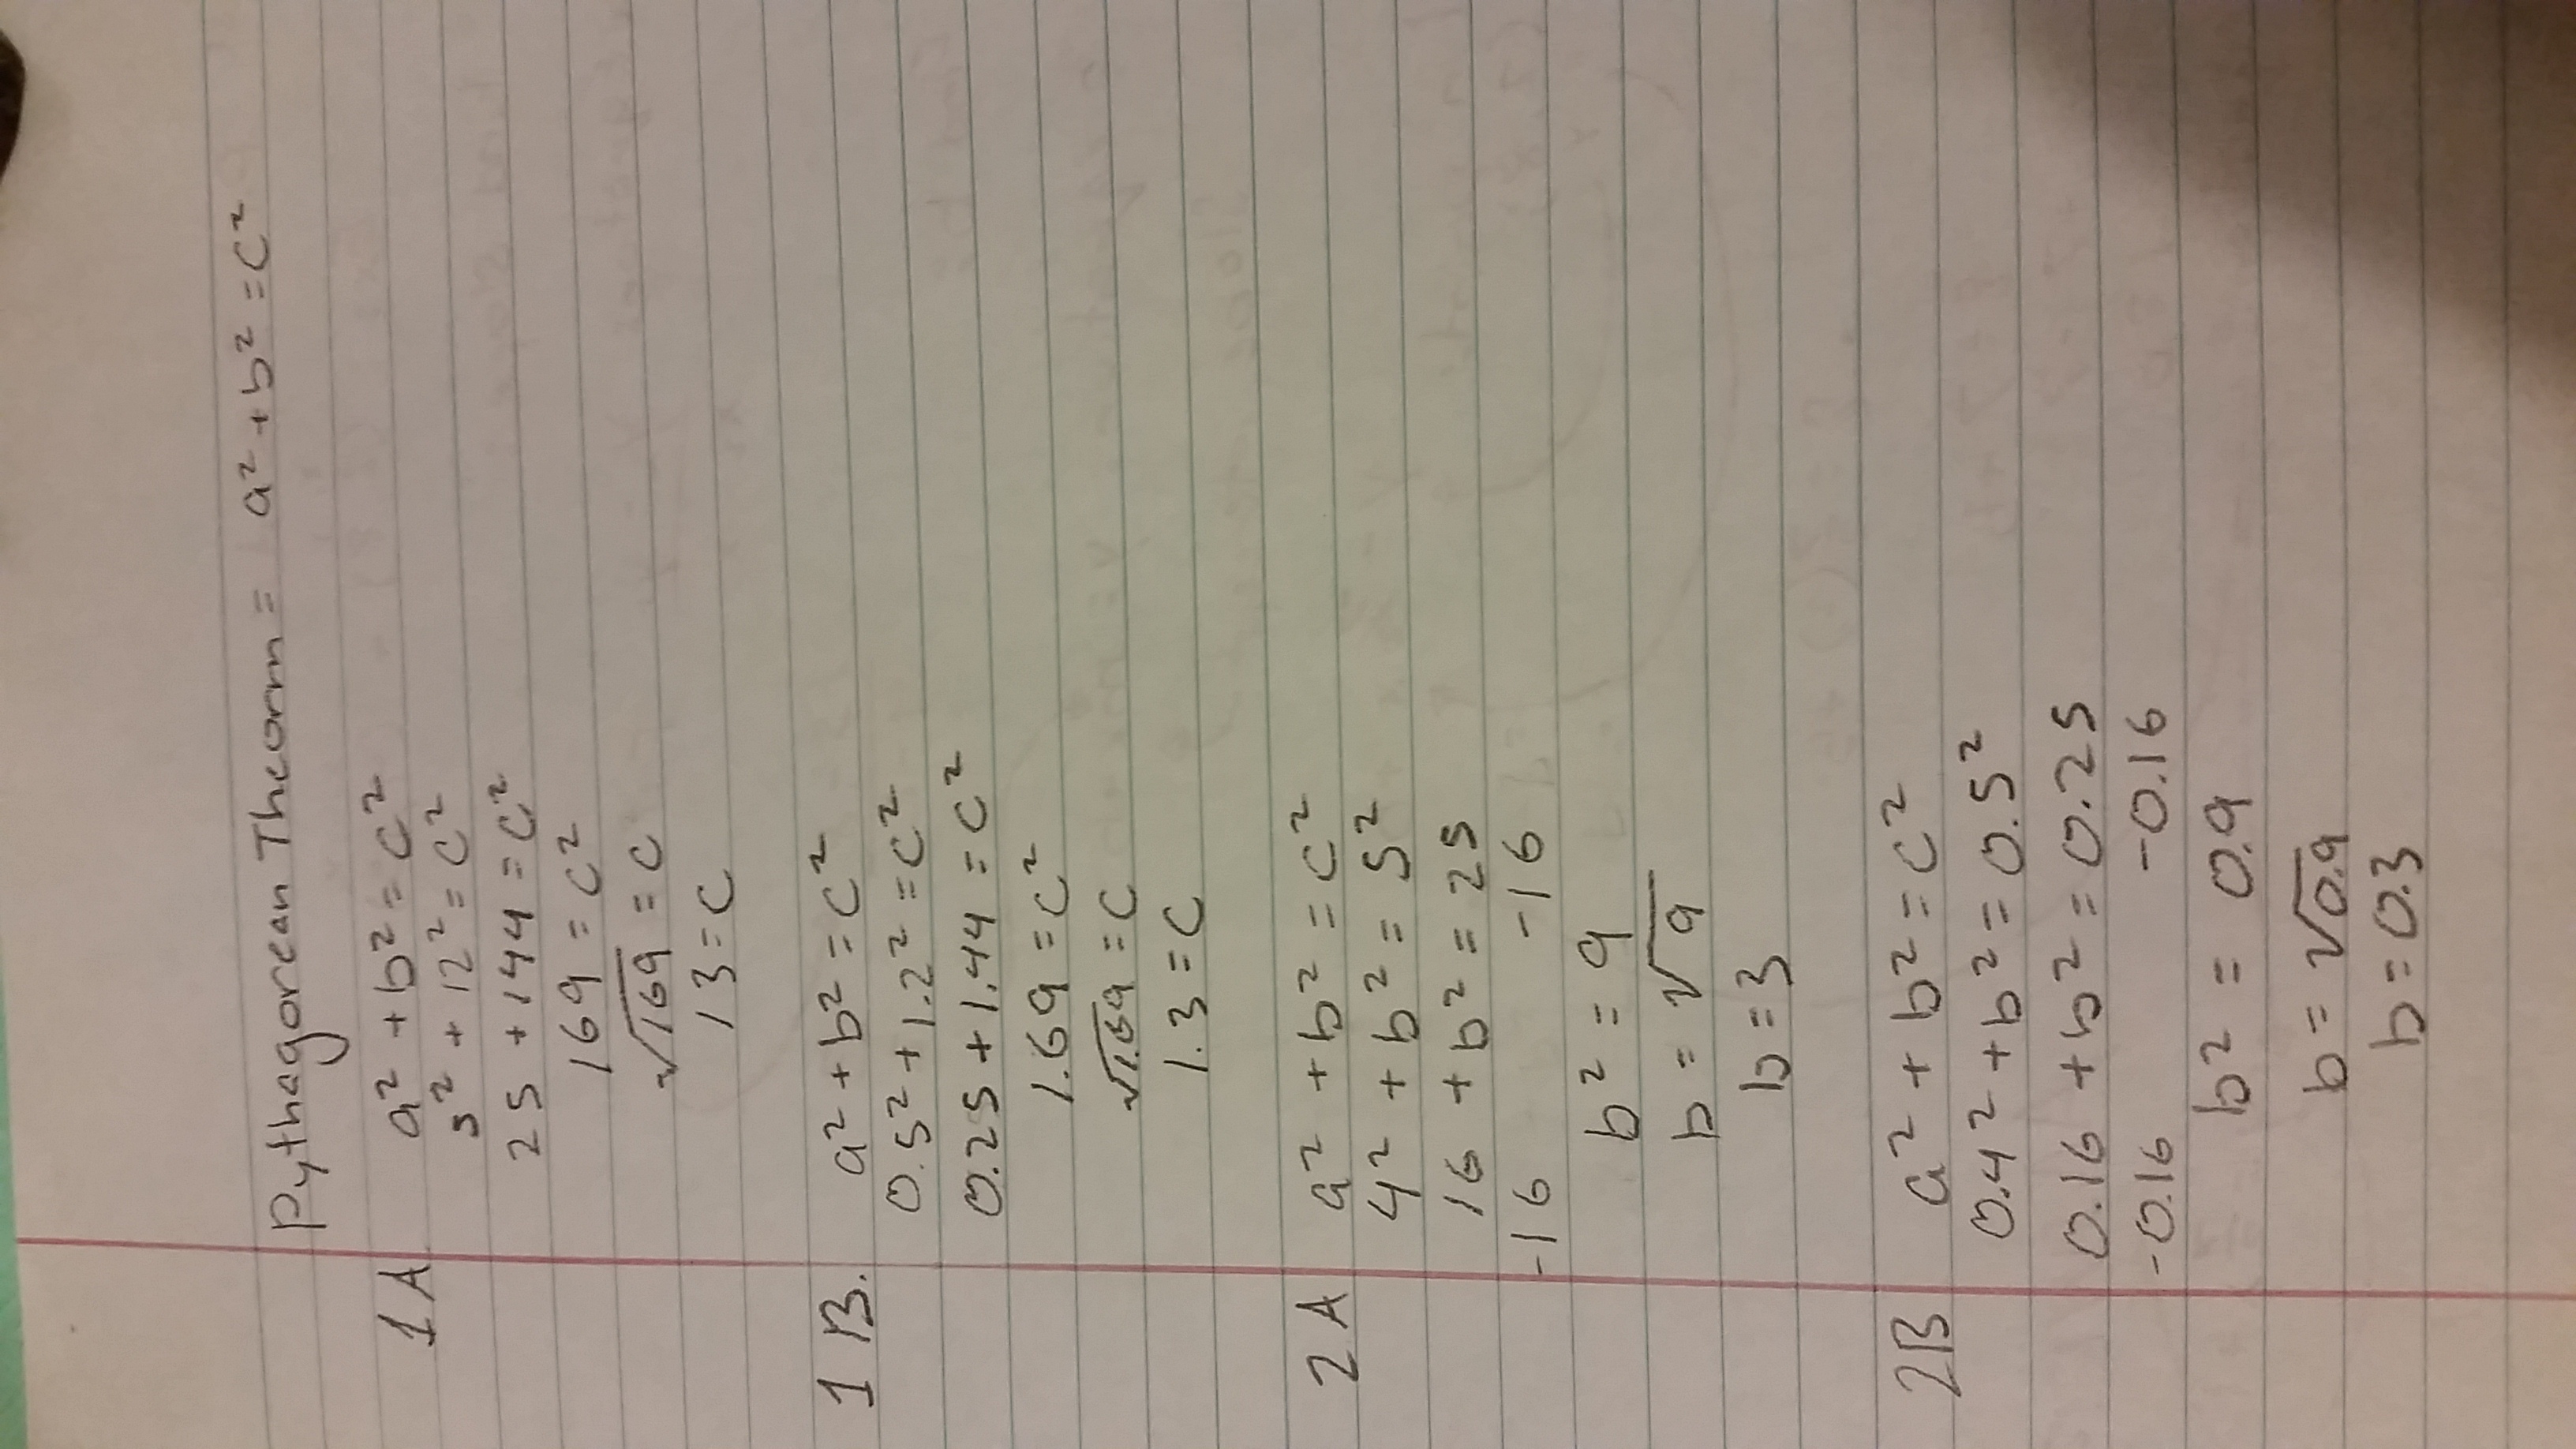 Pythagorean Theorm = a² + b² = c²
1A a² + b² = c²
5² + 12² = c²
25 + 144 = c²
169 = c²
√169 = c
13 = c
1B. a² + b² = c²
0.5² + 1.2² = c²
0.25 + 1.44 = c²
1.69 = c²
√1.69 = c
1.3 = c
2A a² + b² = c²
4² + b² = 5²
16 + b² = 25
-16 -16
b² = 9
b = √9
b = 3
2B a² + b² = c²
0.4² + b² = 0.5²
0.16 + b² = 0.25
-0.16 -0.16
b² = 0.9
b = √0.9
b = 0.3